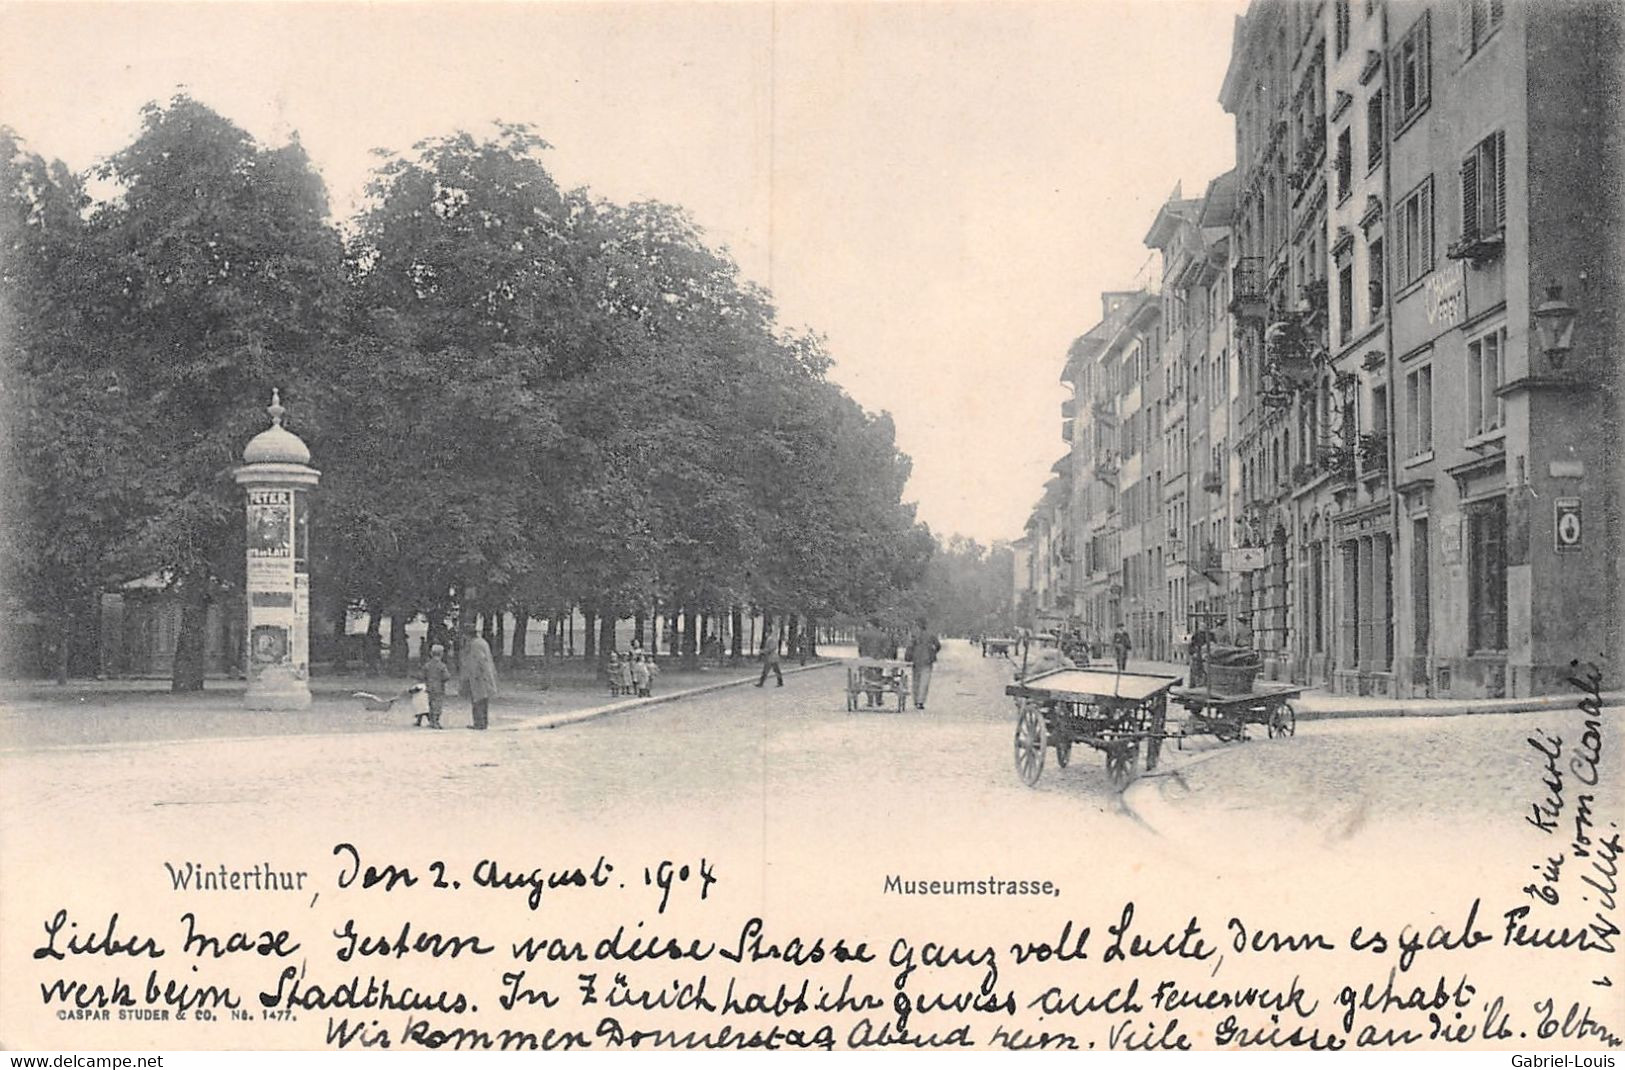 PETER
Winterthur, Den 2. August. 1904
Museumstrasse,
Lieber Maxe, Gestern war diese Strasse ganz voll Leute, denn es gab Feuer
werk beim Stadthaus. In Zürich habt ihr gewiss auch Feuerwerk gehabt.
CASPAR STUDER & CO. No. 1477.
Wir kommen Donnerstag Abend heim. Viele Grüsse an die lb. Eltern
Ein
vom Clarali
Willy.
www.delcampe.net
Gabriel-Louis